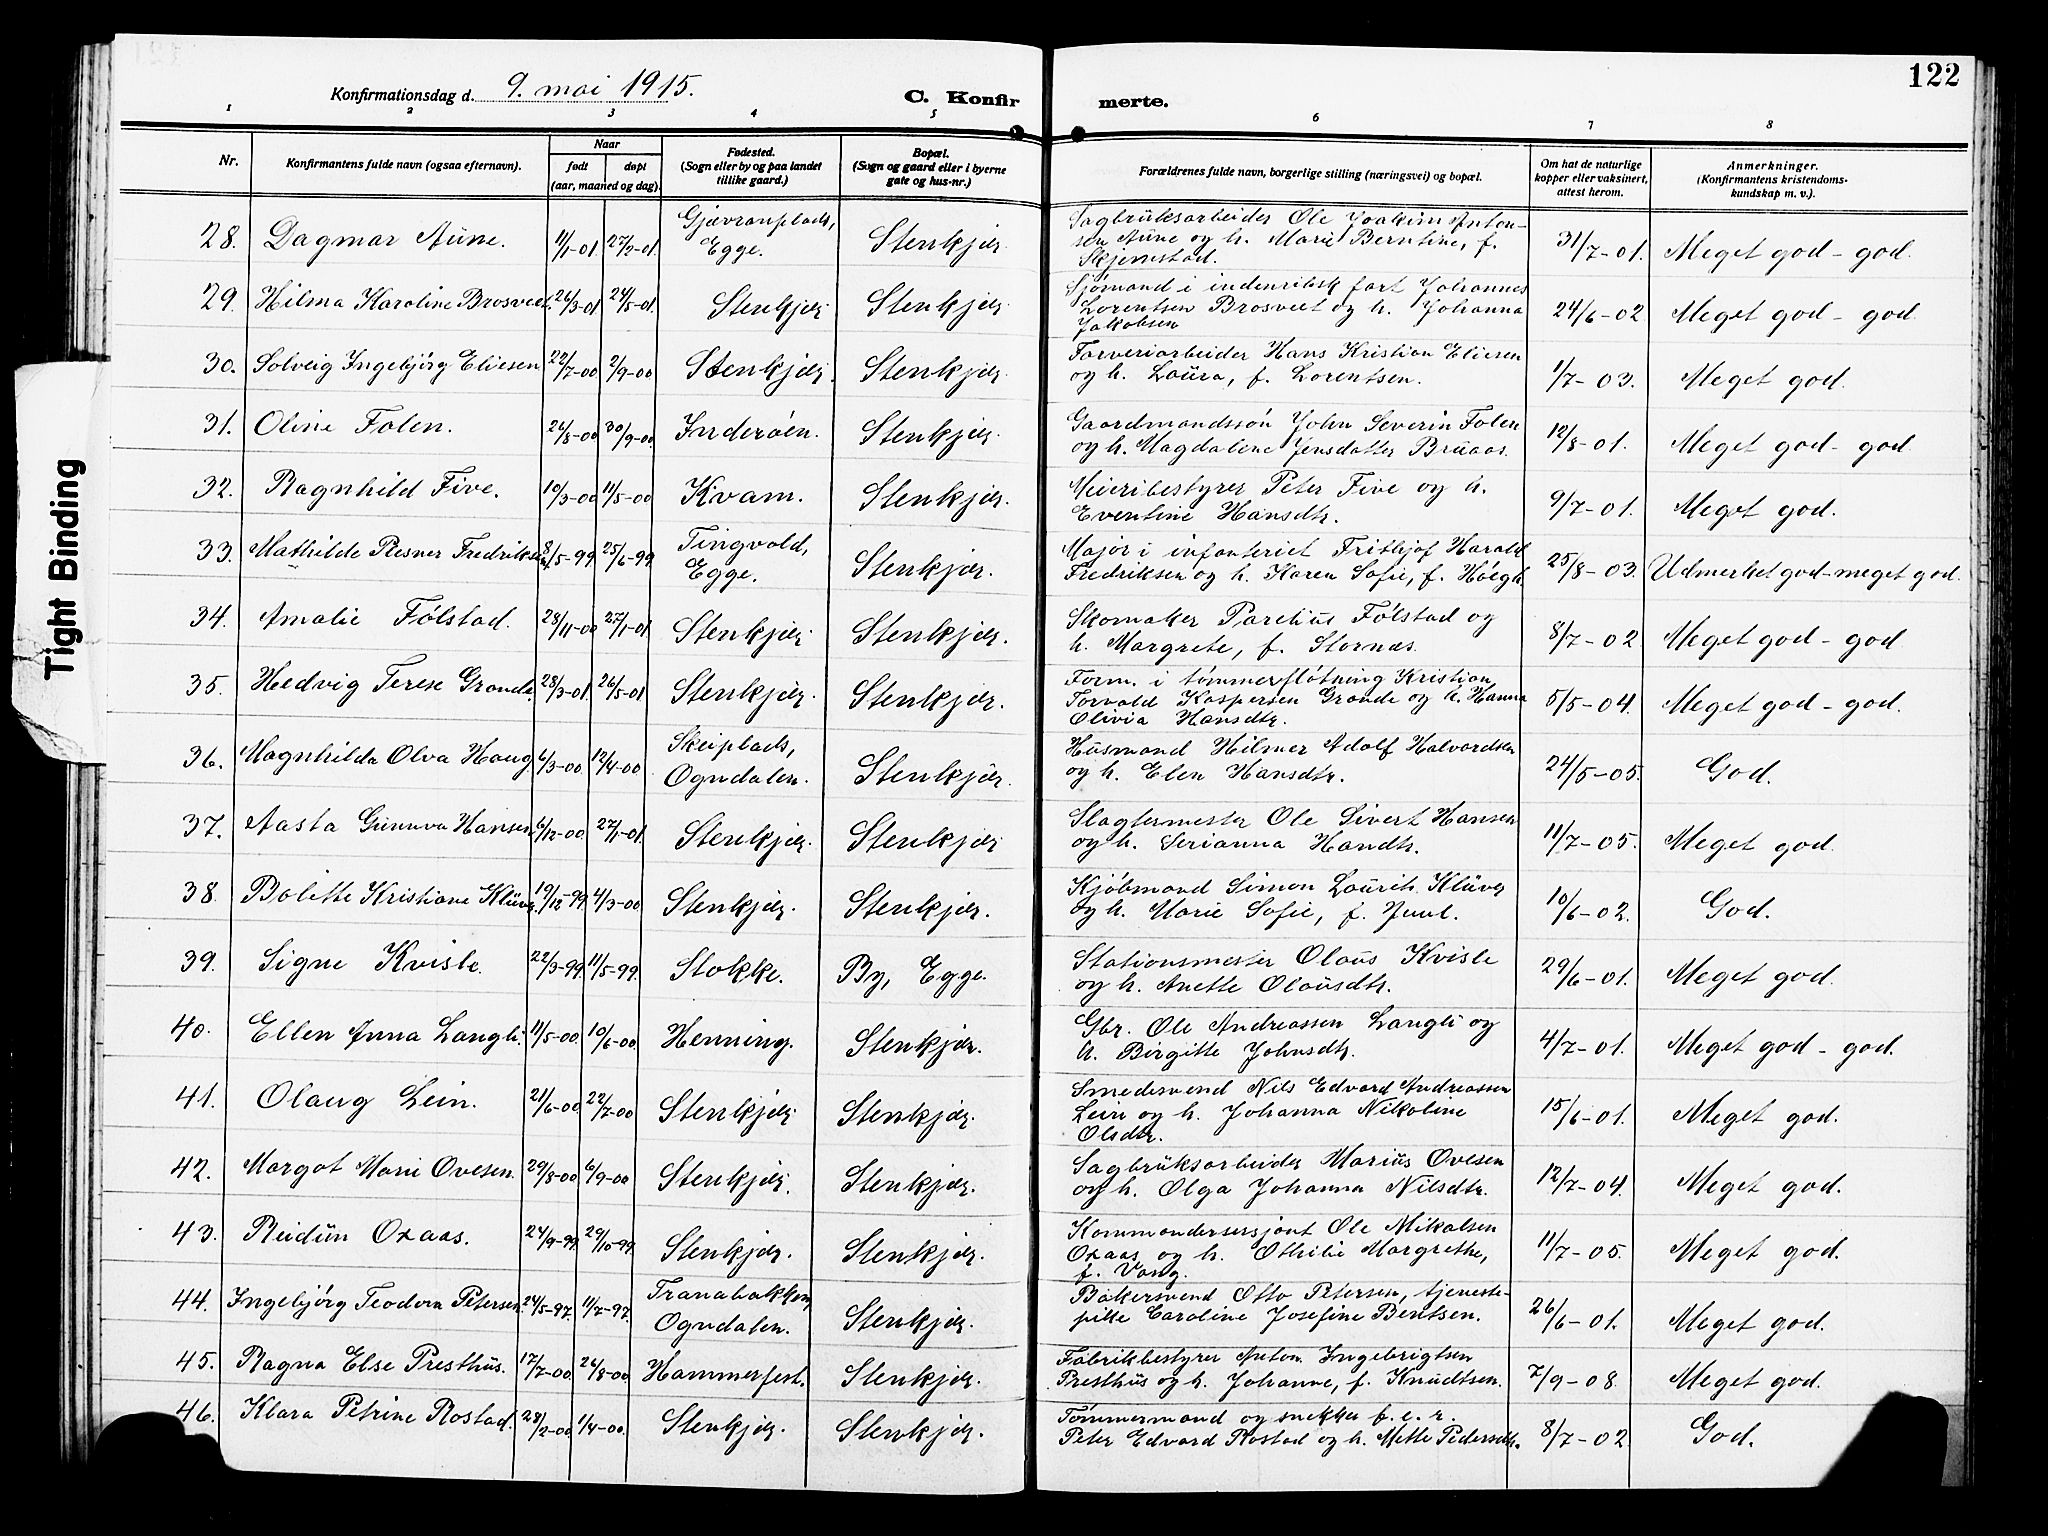 122
Konfirmationsdag d. 9. mai 1915. C. Konfirmerte.
1 2 3 4 5 6 7 8
Nr.
Konfirmantens fulde navn (ogsaa efternavn).
Naar
født døpt
(aar, maaned og dag).
Fødested.
(Sogn eller by og paa landet
tillike gaard.)
Bopæl.
(Sogn og gaard eller i byerne
gate og hus-nr.)
Forældrenes fulde navn, borgerlige stilling (næringsvei) og bopæl.
Om hat de naturlige
kopper eller vaksinert,
attest herom.
Anmerkninger.
(Konfirmantens kristendoms-
kundskap m. v.).
28. Dagmar Aune. 11/1-01 27/2-01 Gjævranplads, Egge. Stenkjær. Sagbruksarbeider Ole Joakim Anton-
sen Aune og h. Marie Berntine, f.
Skjemstad. 31/7-01. Meget god - god.
29. Hilma Karoline Brosveet. 26/3-01 24/5-01. Stenkjær Stenkjær. Sjømand i indenriksk fart Johannes
Lorentsen Brosveet og h. Johanna
Jakobsen 24/6-02 Meget god - god
30. Solveig Ingebjörg Eliesen 22/7-00 2/9-00 Stenkjær. Stenkjær. Farveriarbeider Hans Kristian Eliesen
og h. Laura, f. Lorentsen. 1/7-03. Meget god.
31. Oline Folen. 26/8-00 30/9-00 Inderöen. Stenkjær. Gaardmandssön John Severin Folen
og h. Magdalene Jensdatter Bruaas. 12/8-01. Meget god - god
32. Ragnhild Five. 10/3-00 11/5-00 Kvam. Stenkjær. Meieribestyrer Peter Five og h.
Eventine Hansdtr. 9/7-01. Meget god.
33. Mathilde Plesner Fredriksen 8/5-99 25/6-99 Tingvold, Egge. Stenkjær. Major i infanteriet Frithjof Harald
Fredriksen og h. Karen Sofie, f. Höegh 25/8-03. Udmerket god - meget god.
34. Amalie Fölstad. 28/11-00 27/1-01 Stenkjær Stenkjær. Skomaker Parelius Fölstad og
h. Margrete, f. Stornæs. 8/7-02 Meget god - god
35. Hedvig Terese Grande. 28/3-01 26/5-01 Stenkjær. Stenkjær. Form. i tömmerflötning Kristian
Torvald Kaspersen Grande og h. Hanna
Olivia Hansdtr. 5/5-04. Meget god - god.
36. Magnhilda Olva Haug 6/3-00 12/4-00 Skeiplads, Ogndalen. Stenkjær. Husmand Hilmer Adolf Halvardsen
og h. Elen Hansdtr. 24/5-05. God.
37. Aasta Gunnva Hansen 6/12-00 27/1-01 Stenkjær. Stenkjær Slagtermester Ole Sivert Hansen
og h. Serianna Handtr. 11/7-05. Meget god
38. Bolette Kristiane Klüver 19/12-99 4/3-00 Stenkjær. Stenkjær. Kjöbmand Simon Laurits Klüver
og h. Marie Sofie, f. Juul. 10/6-02. God.
39. Signe Kvisle. 22/3-99 11/5-99. Stokke. By, Egge. Stationsmester Olaus Kvisle
og h. Anette Olausdtr. 29/6-01. Meget god.
40. Ellen Anna Langli. 11/5-00 10/6-00. Henning. Stenkjær. Gbr. Ole Andreassen Langli og
h. Birgitte Johnsdtr. 4/7-01. Meget god - god.
41. Olaug Lein. 21/6-00 22/7-00 Stenkjær Stenkjær. Smedesvend Nils Edvard Andreassen
Lein og h. Johanna Nikoline
Olsdtr. 15/6-01. Meget god.
42. Margot Marie Ovesen. 29/8-00 6/9-00 Stenkjær. Stenkjær. Sagbruksarbeider Marius Ovesen
og h. Olga Johanna Nilsdtr. 12/7-04. Meget god.
43. Reidun Oxaas. 24/9-99 29/10-99. Stenkjær. Stenkjær. Kommandersersjant Ole Mikalsen
Oxaas og h. Othilie Margrethe,
f. Vang. 11/7-05. Meget god.
44. Ingebjörg Teodora Petersen 24/5-97. 11/7-97. Tranabakken, Ogndalen. Stenkjær. Bakersvend Otto Petersen, tjeneste-
pike Caroline Josefine Bentsen. 26/6-01. Meget god.
45. Ragna Else Presthus. 17/7-00 26/8-00 Hammerfest. Stenkjær. Fabrikbestyrer Anton Ingebrigtsen
Presthus og h. Johanne, f. Knudtsen. 7/9-08 Meget god.
46. Klara Petrine Rostad. 28/2-00 1/4-00. Stenkjær. Stenkjær. Tömmermand og snekker f. e. r.
Peter Edvard Rostad og h. Mette Pedersdtr. 8/7-02 God.
Tight Binding